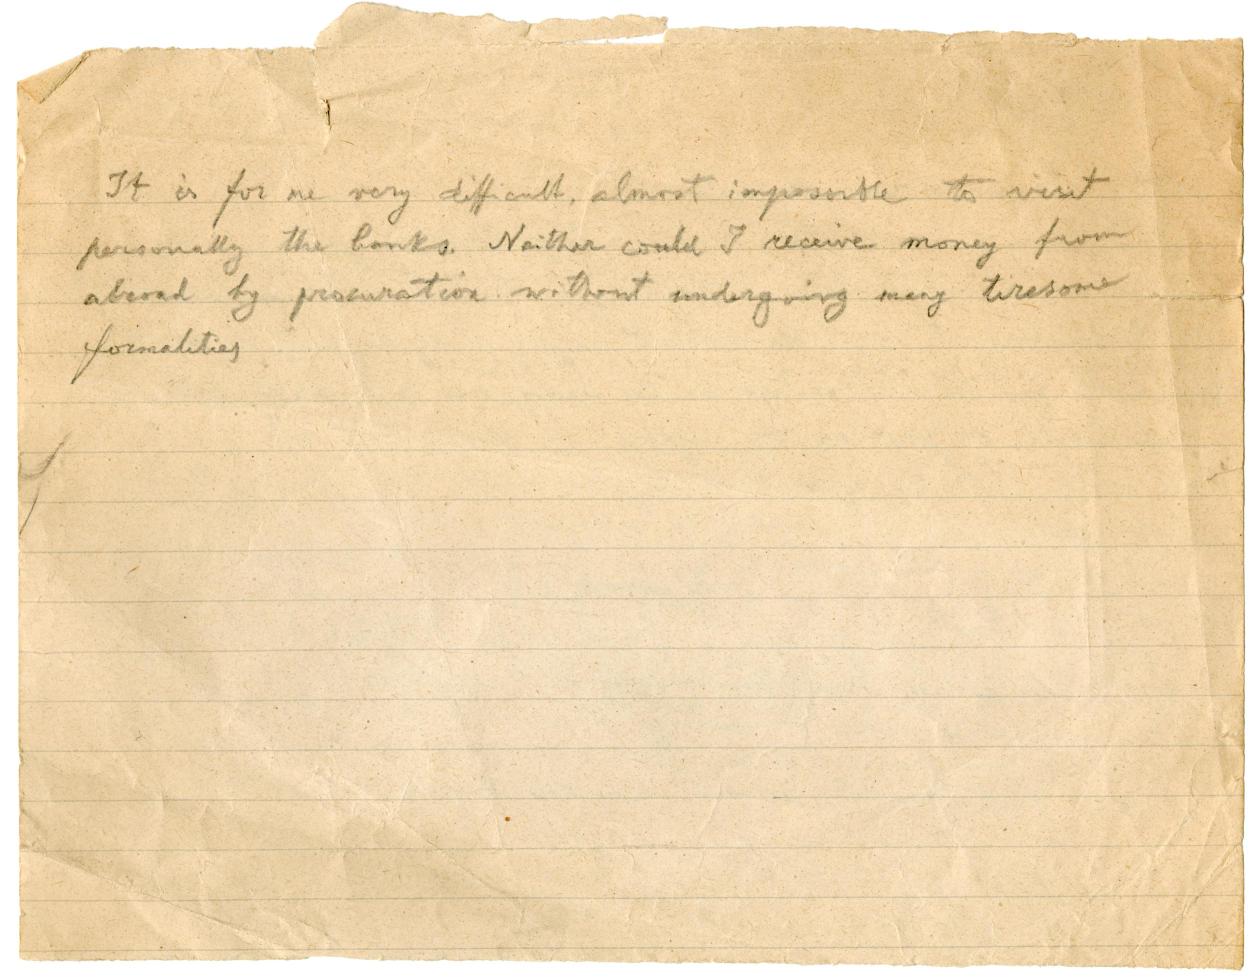 It is for me very difficult, almost impossible to visit
personally the banks. Neither could I receive money from
abroad by procuration without undergoing many tiresome
formalities